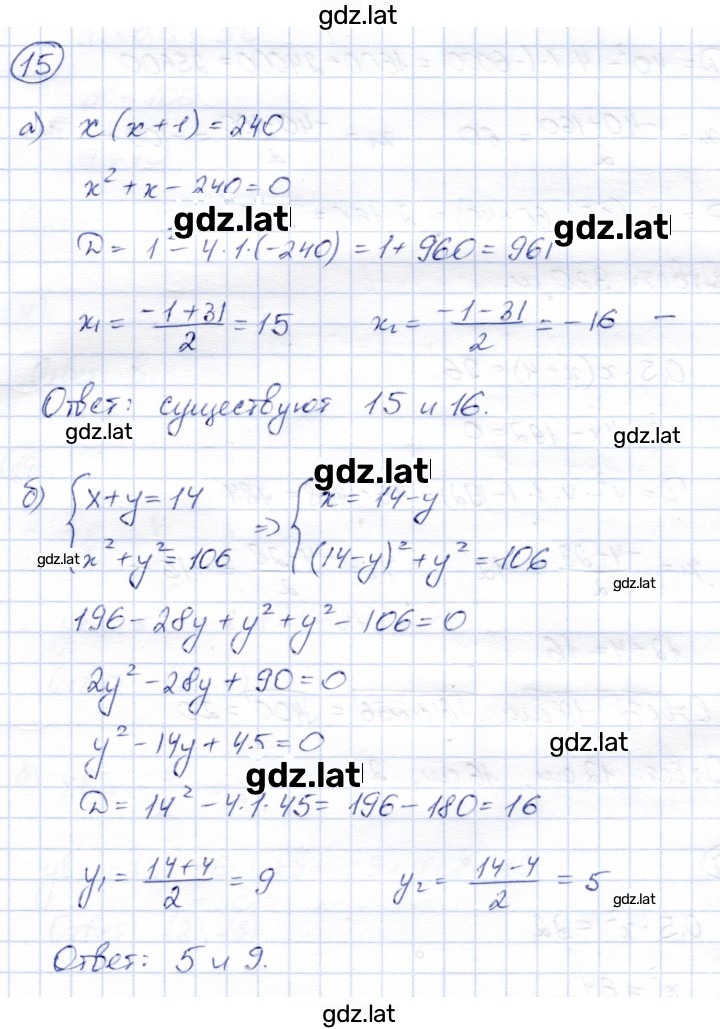 gdz.lat
15
а) x(x+1)=240
x²+x-240=0
gdz.lat gdz.lat
D= 1²-4·1·(-240) = 1+960=961
x₁= (-1+31)/2 = 15 x₂= (-1-31)/2 = -16 —
Ответ: существуют 15 и 16.
gdz.lat gdz.lat
gdz.lat
б) { x+y=14 => { x=14-y
gdz.lat x²+y²=106 (14-y)²+y²=106
gdz.lat
196-28y+y²+y²-106=0
2y²-28y+90=0
y²-14y+45=0 gdz.lat
gdz.lat
D= 14²-4·1·45= 196-180=16
y₁= (14+4)/2 = 9 y₂= (14-4)/2 = 5
gdz.lat
Ответ: 5 и 9.
gdz.lat